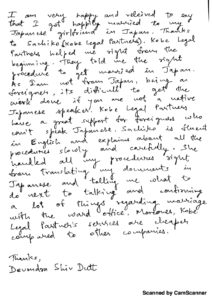 I am very happy and relieved to say
that I got happily married to my
Japanese girlfriend in Japan. Thanks
to Sachiko (Kobe Legal Partners). Kobe Legal
Partners helped me right from the
beginning. They told me the right
procedure to get married in Japan.
As I am not from Japan, being a
foreigner, its difficult to get the
work done if you are not native
Japanese speaker. Kobe Legal Partners
have a great support for foreigners who
can't speak Japanese. Sachiko is fluent
in English and explains about all the
procedures slowly and carefully. She
handled all my procedures right
from translating my documents in
Japanese and telling me what to
do next to talking and confirming
a lot of things regarding marriage
with the ward office. Moreover, Kobe
Legal Partner's services are cheaper
compared to other companies.
Thanks,
Devendra Shiv Dutt
Scanned by CamScanner